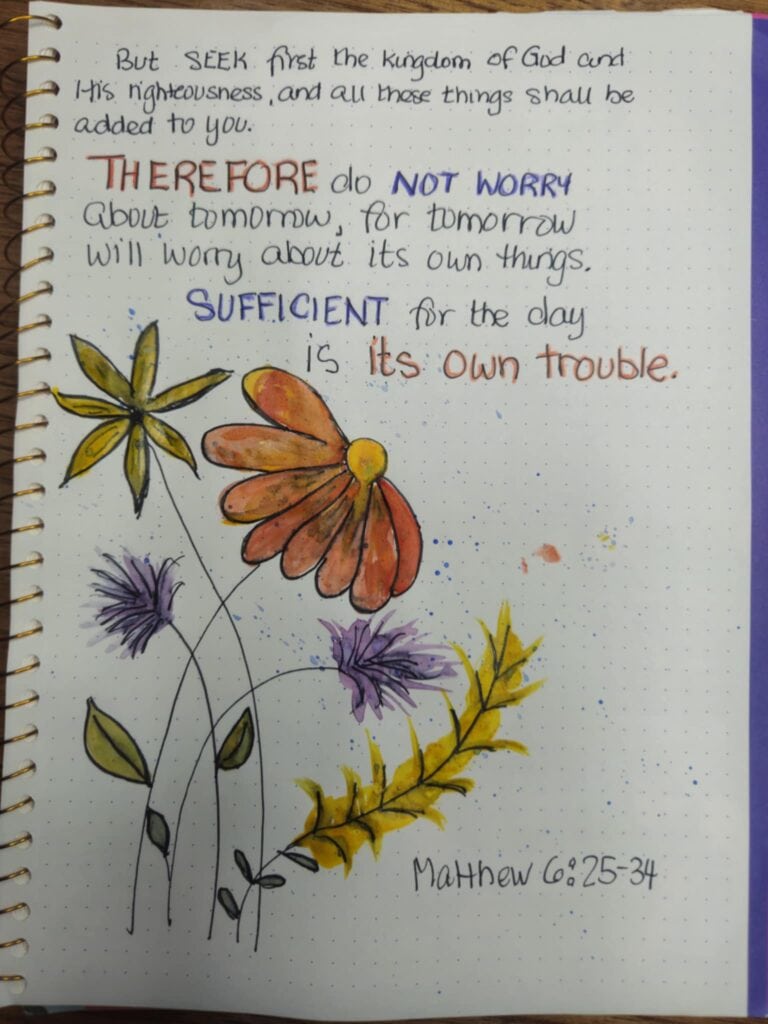 But SEEK first the kingdom of God and
His righteousness, and all these things shall be
added to you.
THEREFORE do NOT WORRY
About tomorrow, for tomorrow
will worry about its own things.
SUFFICIENT for the day
is its own trouble.
Matthew 6:25-34